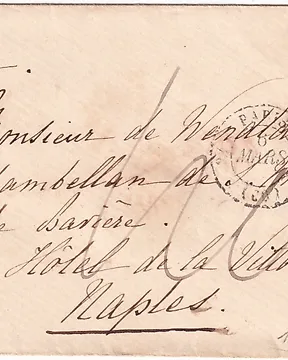 onsieur de Wendla
ambellan de
de Bavière.
Hôtel de la Vill
Naples.
PARIS
6
MARS
(60)